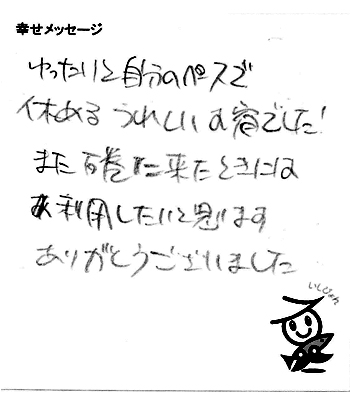 幸せメッセージ
ゆったりと自分のペースで
休める うれしいお宿でした!
また石巻に来たときには
お利用したいと思います
ありがとうございました
いしぴょん